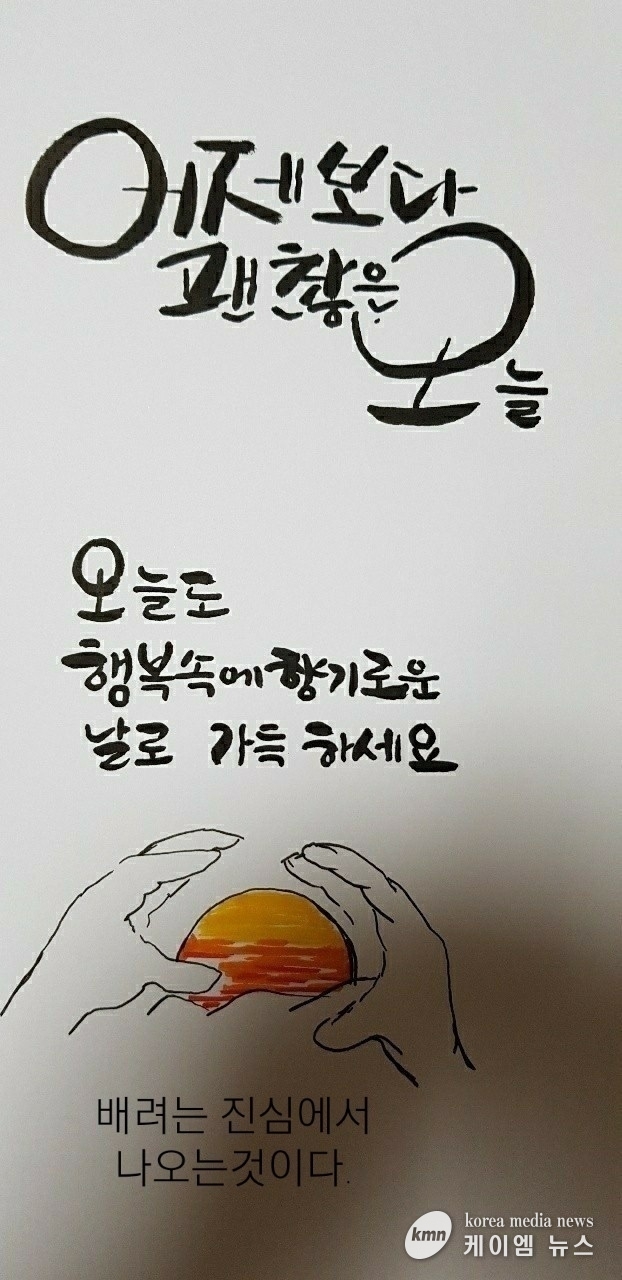 어제보다
괜찮은
오늘
오늘도
행복속에향기로운
날로 가득 하세요
배려는 진심에서
나오는것이다.
kmn
korea media news
케이엠 뉴스